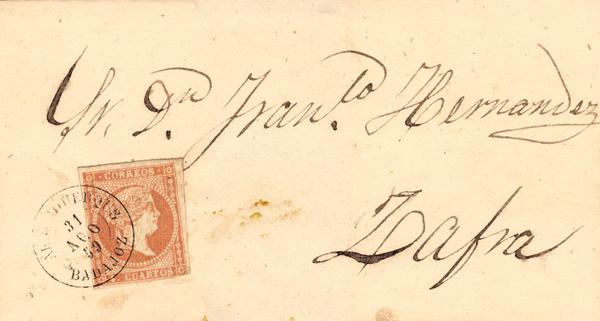 Sr. Dn Franco. Hernandez
Zafra
CORREOS
CUARTOS
ALBURQUERQUE
31
AGO
59
BADAJOZ